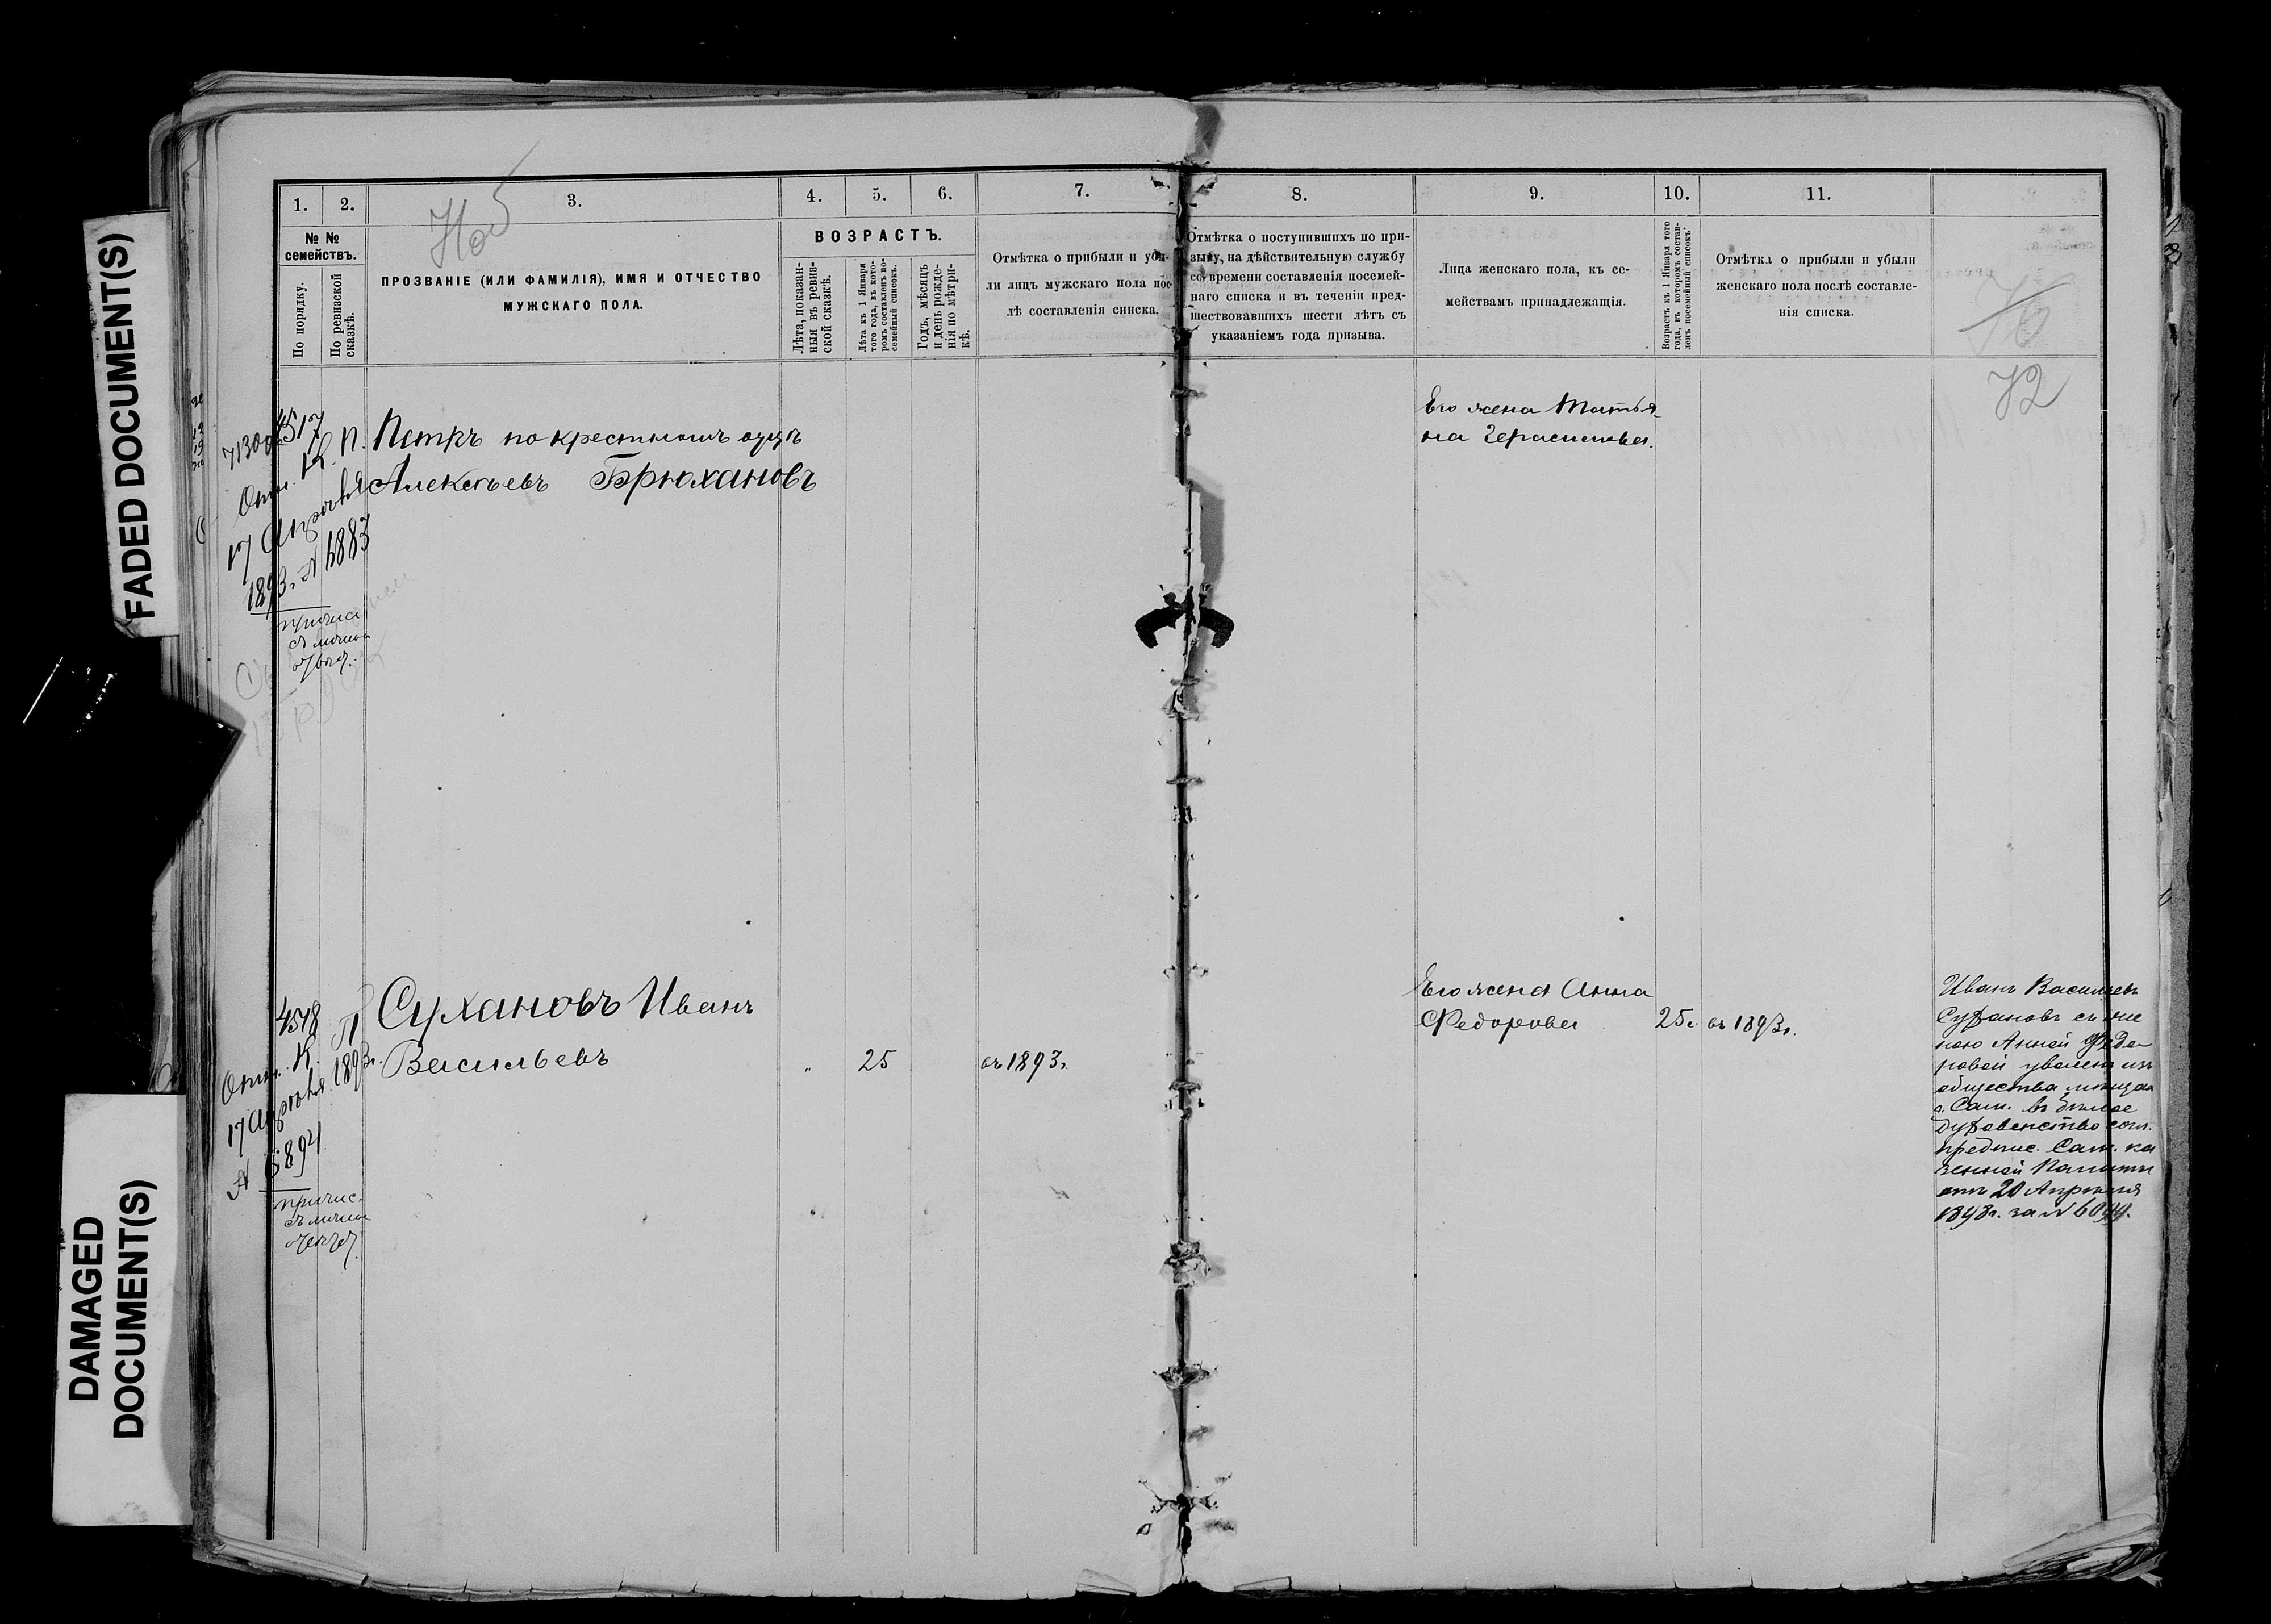 FADED DOCUMENT(S)
DAMAGED
DOCUMENT(S)
1.
2.
3.
4.
5.
6.
7.
8.
9.
10.
11.
№ №
семействъ.
По порядку.
По ревизской
сказкѣ.
ПРОЗВАНІЕ (ИЛИ ФАМИЛІЯ), ИМЯ И ОТЧЕСТВО
МУЖСКАГО ПОЛА.
ВОЗРАСТЪ.
Лѣта, показан-
ныя въ ревиз-
ской сказкѣ.
Лѣта къ 1 Января
того года, въ кото-
ромъ составленъ по-
семейный списокъ.
Годъ, мѣсяцъ
и день рожде-
нія по метри-
кѣ.
Отмѣтка о прибыли и убы-
ли лицъ мужскаго пола пос-
лѣ составленія списка.
Отмѣтка о поступившихъ по при-
зыву, на дѣйствительную службу
со времени составленія посемей-
наго списка и въ теченіи пред-
шествовавшихъ шести лѣтъ съ
указаніемъ года призыва.
Лица женскаго пола, къ се-
мействамъ принадлежащія.
Возрастъ къ 1 Января того
года, въ которомъ состав-
ленъ посемейный списокъ
Отмѣтка о прибыли и убыли
женскаго пола послѣ составле-
нія списка.
72
4517
К. П.
17 Апрѣля
1893 г. №
Петръ по крестному отцу
Алексѣевъ Брюхановъ
Его жена Татья-
на Герасимова.
4518
К. П.
17 Апрѣля 1893 г.
№
Сухановъ Иванъ
Васильевъ
„
25
съ 1893 г.
Его жена Анна
Федорова
25 л.
съ 1893 г.
Иванъ Васильевъ
Сухановъ съ же
ною Анной Федо-
ровой уволенъ изъ
общества мѣщан
г. Сам. въ бѣлое
духовенство согл.
предпис. Сам. ка
зенной Палаты
отъ 20 Апрѣля
1898 г. за №